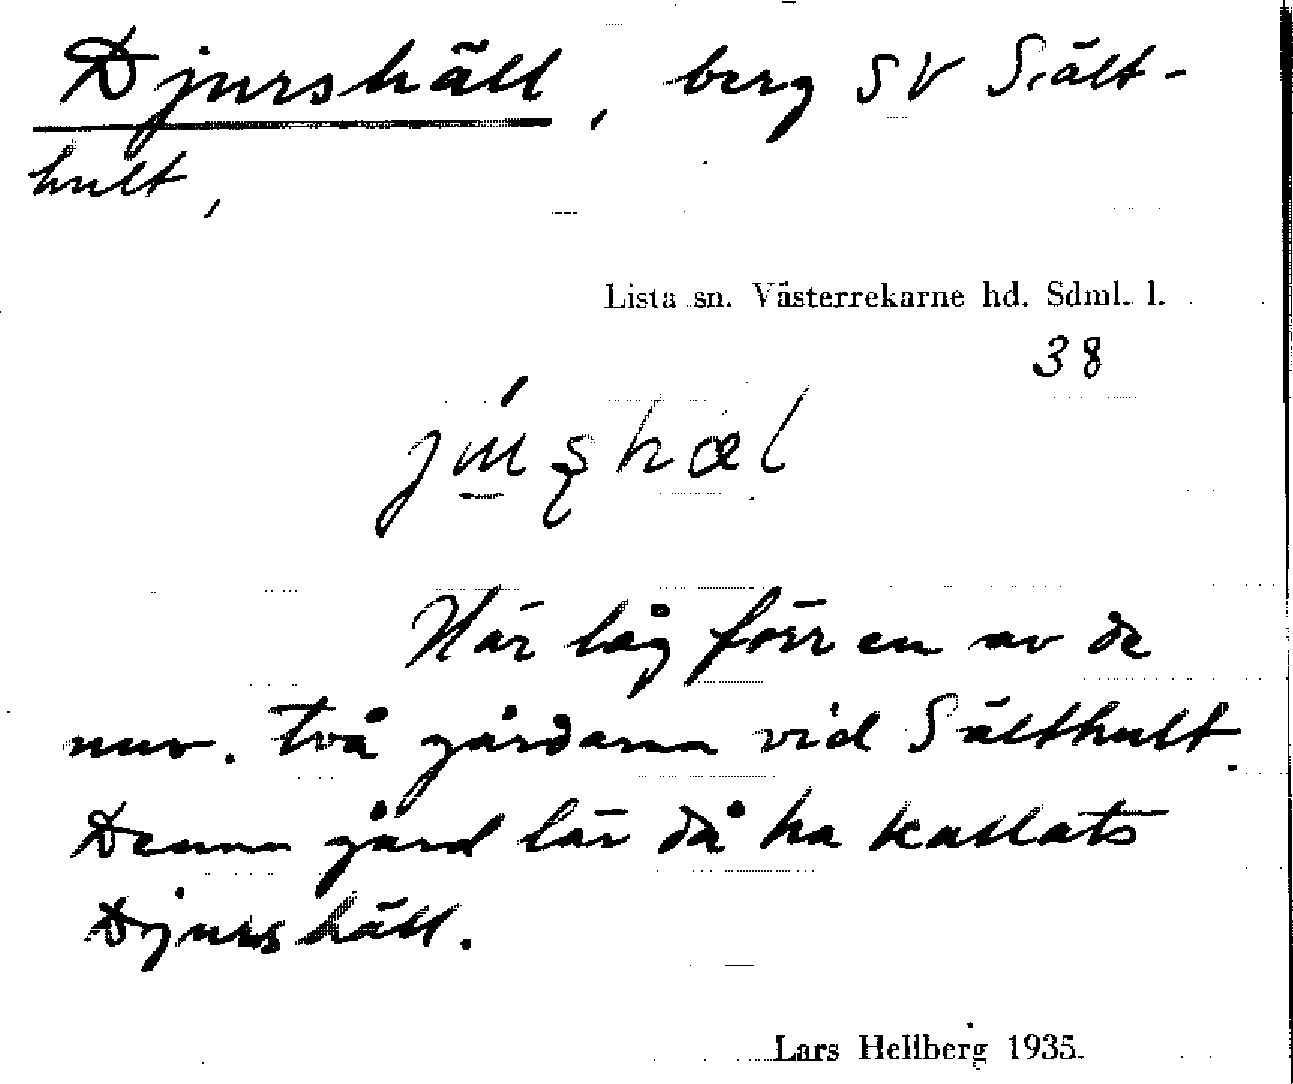 Djurshäll, berg SV Sält-
hult,
Lista sn. Västerrekarne hd. Sdml. l.
38
Här låg förr en av de
nuv. två gårdarna vid Sälthult.
Denna gård lär då ha kallats
Djurshäll.
Lars Hellberg 1935.